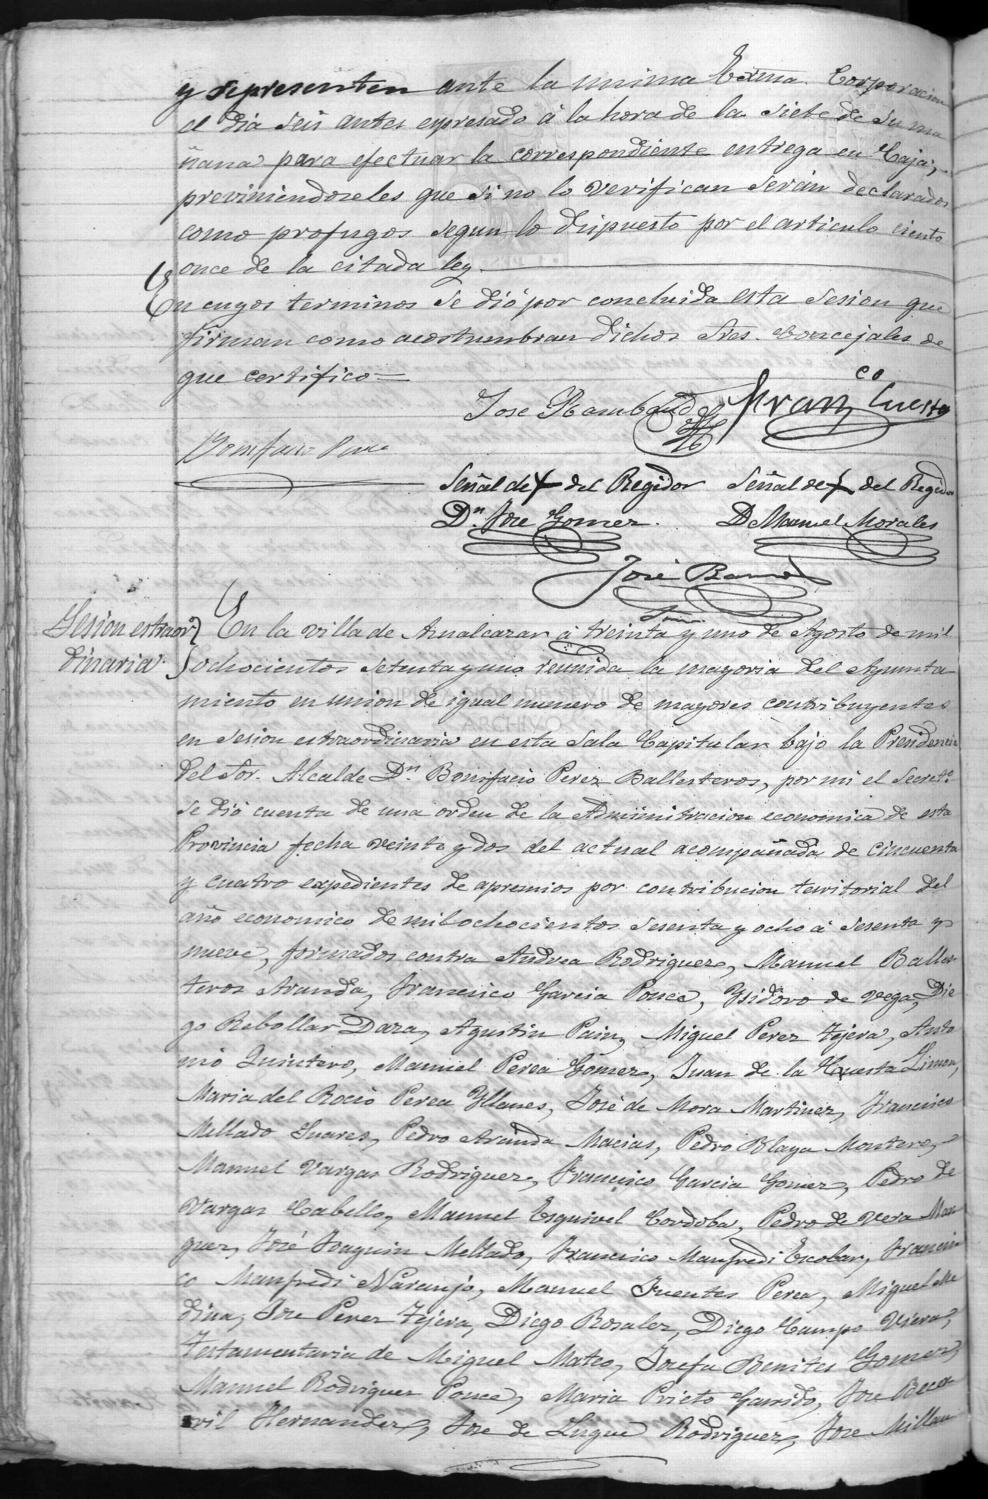 y se presenten ante la misma Exma. Corporacion
el dia seis antes expresado á la hora de las siete de su ma
ñana para efectuar la correspondiente entrega en Caja,
previniendoseles que si no lo verifican serán declarados
como profugos segun lo dispuesto por el articulo ciento
once de la citada ley.
En cuyos terminos se dió por concluida esta sesion que
firman como acostumbran dichos Sres. Concejales de
que certifico=
Jose Rambaud Franco Cuesta
Bonifacio Perez
Señal de + del Regidor Señal de + del Regidor
Dn. Jose Gomez. Dn Manuel Morales
José
Sesion extraor
dinaria.
En la villa de Aznalcazar á treinta y uno de Agosto de mil
ochocientos setenta y uno, reunida la mayoria del Ayunta
miento en union de igual numero de mayores contribuyentes
DIPUTACION DE SEVILLA
ARCHIVO
en sesion extraordinaria en esta Sala Capitular bajo la Presidencia
del Sor. Alcalde Dn. Bonifacio Perez Ballesteros, por mi el Secreto.
se dió cuenta de una orden de la Administracion economica de esta
Provincia fecha veinte y dos del actual acompañada de cincuenta
y cuatro expedientes de apremios por contribucion territorial del
año economico de mil ochocientos sesenta y ocho á sesenta y
nueve, formados contra Andrea Rodriguez, Manuel Balles
teros Aranda, Francisco Garcia Ponce, Ysidoro de Vega, Die
go Rebollar Daza, Agustin Pain, Miguel Perez Tejera, Anto
nio Quintero, Manuel Perea Gomez, Juan de la Cuesta Limon,
Maria del Rocio Perea Yllanes, José de Mora Martinez, Francisco
Mellado Suares, Pedro Aranda Macias, Pedro Blaya Montero,
Manuel Vargas Rodriguez, Francisco Garcia Gomez, Pedro de
Vargas Cabello, Manuel Esquivel Cordoba, Pedro de Vera Mar
quez, José Joaquin Mellado, Francisco Manfredi Escobar, Francis
co Manfredi Naranjo, Manuel Fuentes Perea, Miguel Me
dina, Jose Perez Tejera, Diego Rosalez, Diego Campo Viera,
Testamentaria de Miguel Mateo, Josefa Benites Gomez,
Manuel Rodriguez Ponce, Maria Prieto Garrido, Jose Beca
rril Hernandez, Jose de Luque Rodriguez, Jose Millan